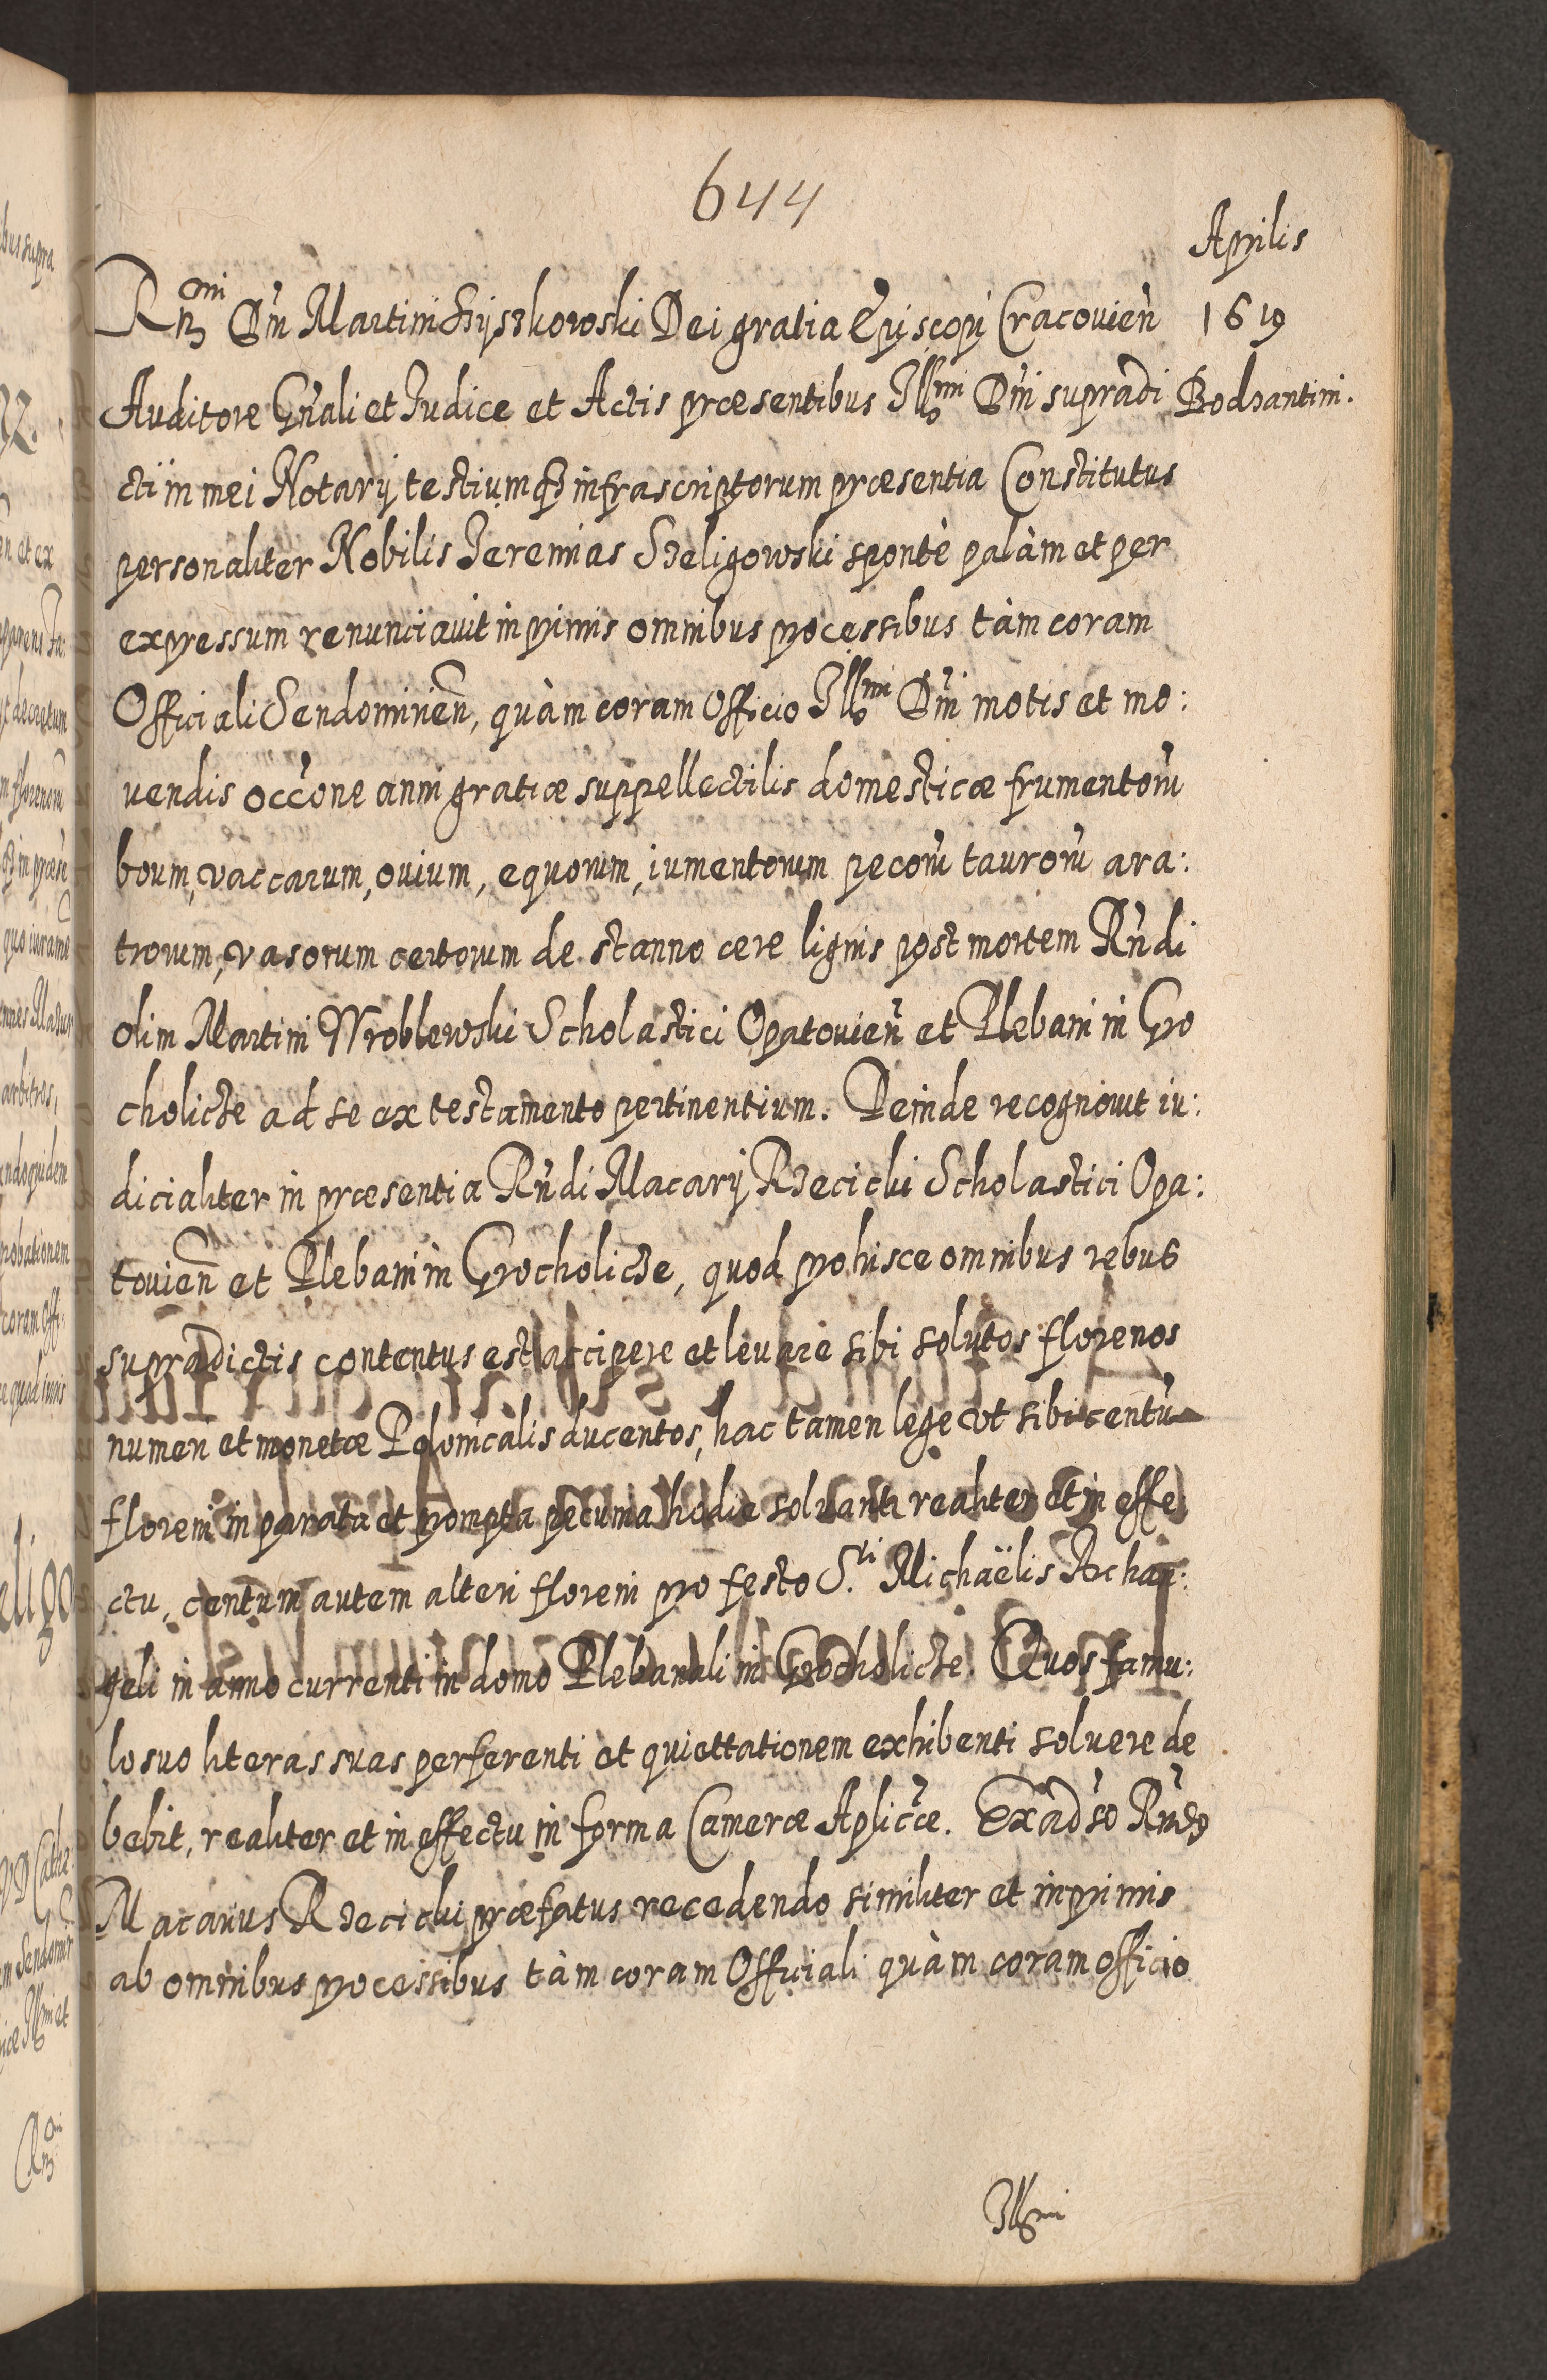 644
Aprilis
1619
Bodzantini.
R̃mi Dñi Martini Szyszkowski Dei gratia Episcopi Cracovien̄
Auditore Gñali et Iudice et Actis præsentibus Illmi Dñi supradi
cti in mei Notarij testiumq̃ infrascriptorum præsentia Constitutus
personaliter Nobilis Ieremias Szeligowski spontè palàm et per
expressum renunciavit inprimis omnibus processibus tàm coram
Officiali Sendomirien̄, quàm coram Officio Illmi Dñi motis et mo:
uendis occ̃one anni gratiæ suppellectilis domesticæ frumentorũ
boum, vaccarum, ouium, equorum, iumentorum pecorũ taurorũ ara:
trorum, vasorum certorum de stanno cere lignis post mortem Rñdi
olim Martini Wroblewski Scholastici Opatouien̄ et Plebani in Gro
cholicze ad se ex testamento pertinentium. Deinde recognouit iu:
dicialiter in præsentia Rñdi Macarij Rzecicki Scholastici Opa:
touien̄ et Plebani in Grocholicze, quod pro hisce omnibus rebus
supradictis contentus est accipere et leuare sibi solutos florenos
numeri et monetæ Polonicalis ducentos, hac tamen lege vt sibi centũ
floreni in parata et prompta pecunia hodie soluantr realiter et in effe
ctu, centum autem alteri floreni pro festo S.ti Michaëlis Archan:
geli in anno currenti in domo Plebanali in Grocholicze. Quos famu:
lo suo literas suas perferenti et quiettationem exhibenti soluere de
bebit, realiter et in effectu in forma Cameræ Aplicæ. Ex adũso Rñdus
Macarius Rzecicki præfatus recedendo similiter et inprimis
ab omnibus processibus tàm coram Officiali quàm coram officio
Illmi